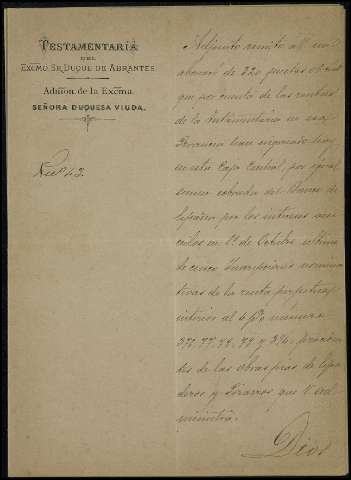 TESTAMENTARÍA
DEL
EXCMO. SR. DUQUE DE ABRANTES
Admon. de la Excma.
SEÑORA DUQUESA VIUDA.
Num. 42
Adjunto remito al un
abonaré de 320 pesetas
que por cuenta de las rentas
de la testamentaría en esa
Provincia han ingresado hoy
en esta Caja Central, por igual
suma cobrada del Banco de
España por los intereses ven-
cidos en 1º de Octubre último
de cinco Inscripciones nomina-
tivas de la renta perpetua
interior al 4 p% números
77, 78, 79 y proceden-
tes de las obras pias de
y Pizarros que V. ad-
ministra.
Dios